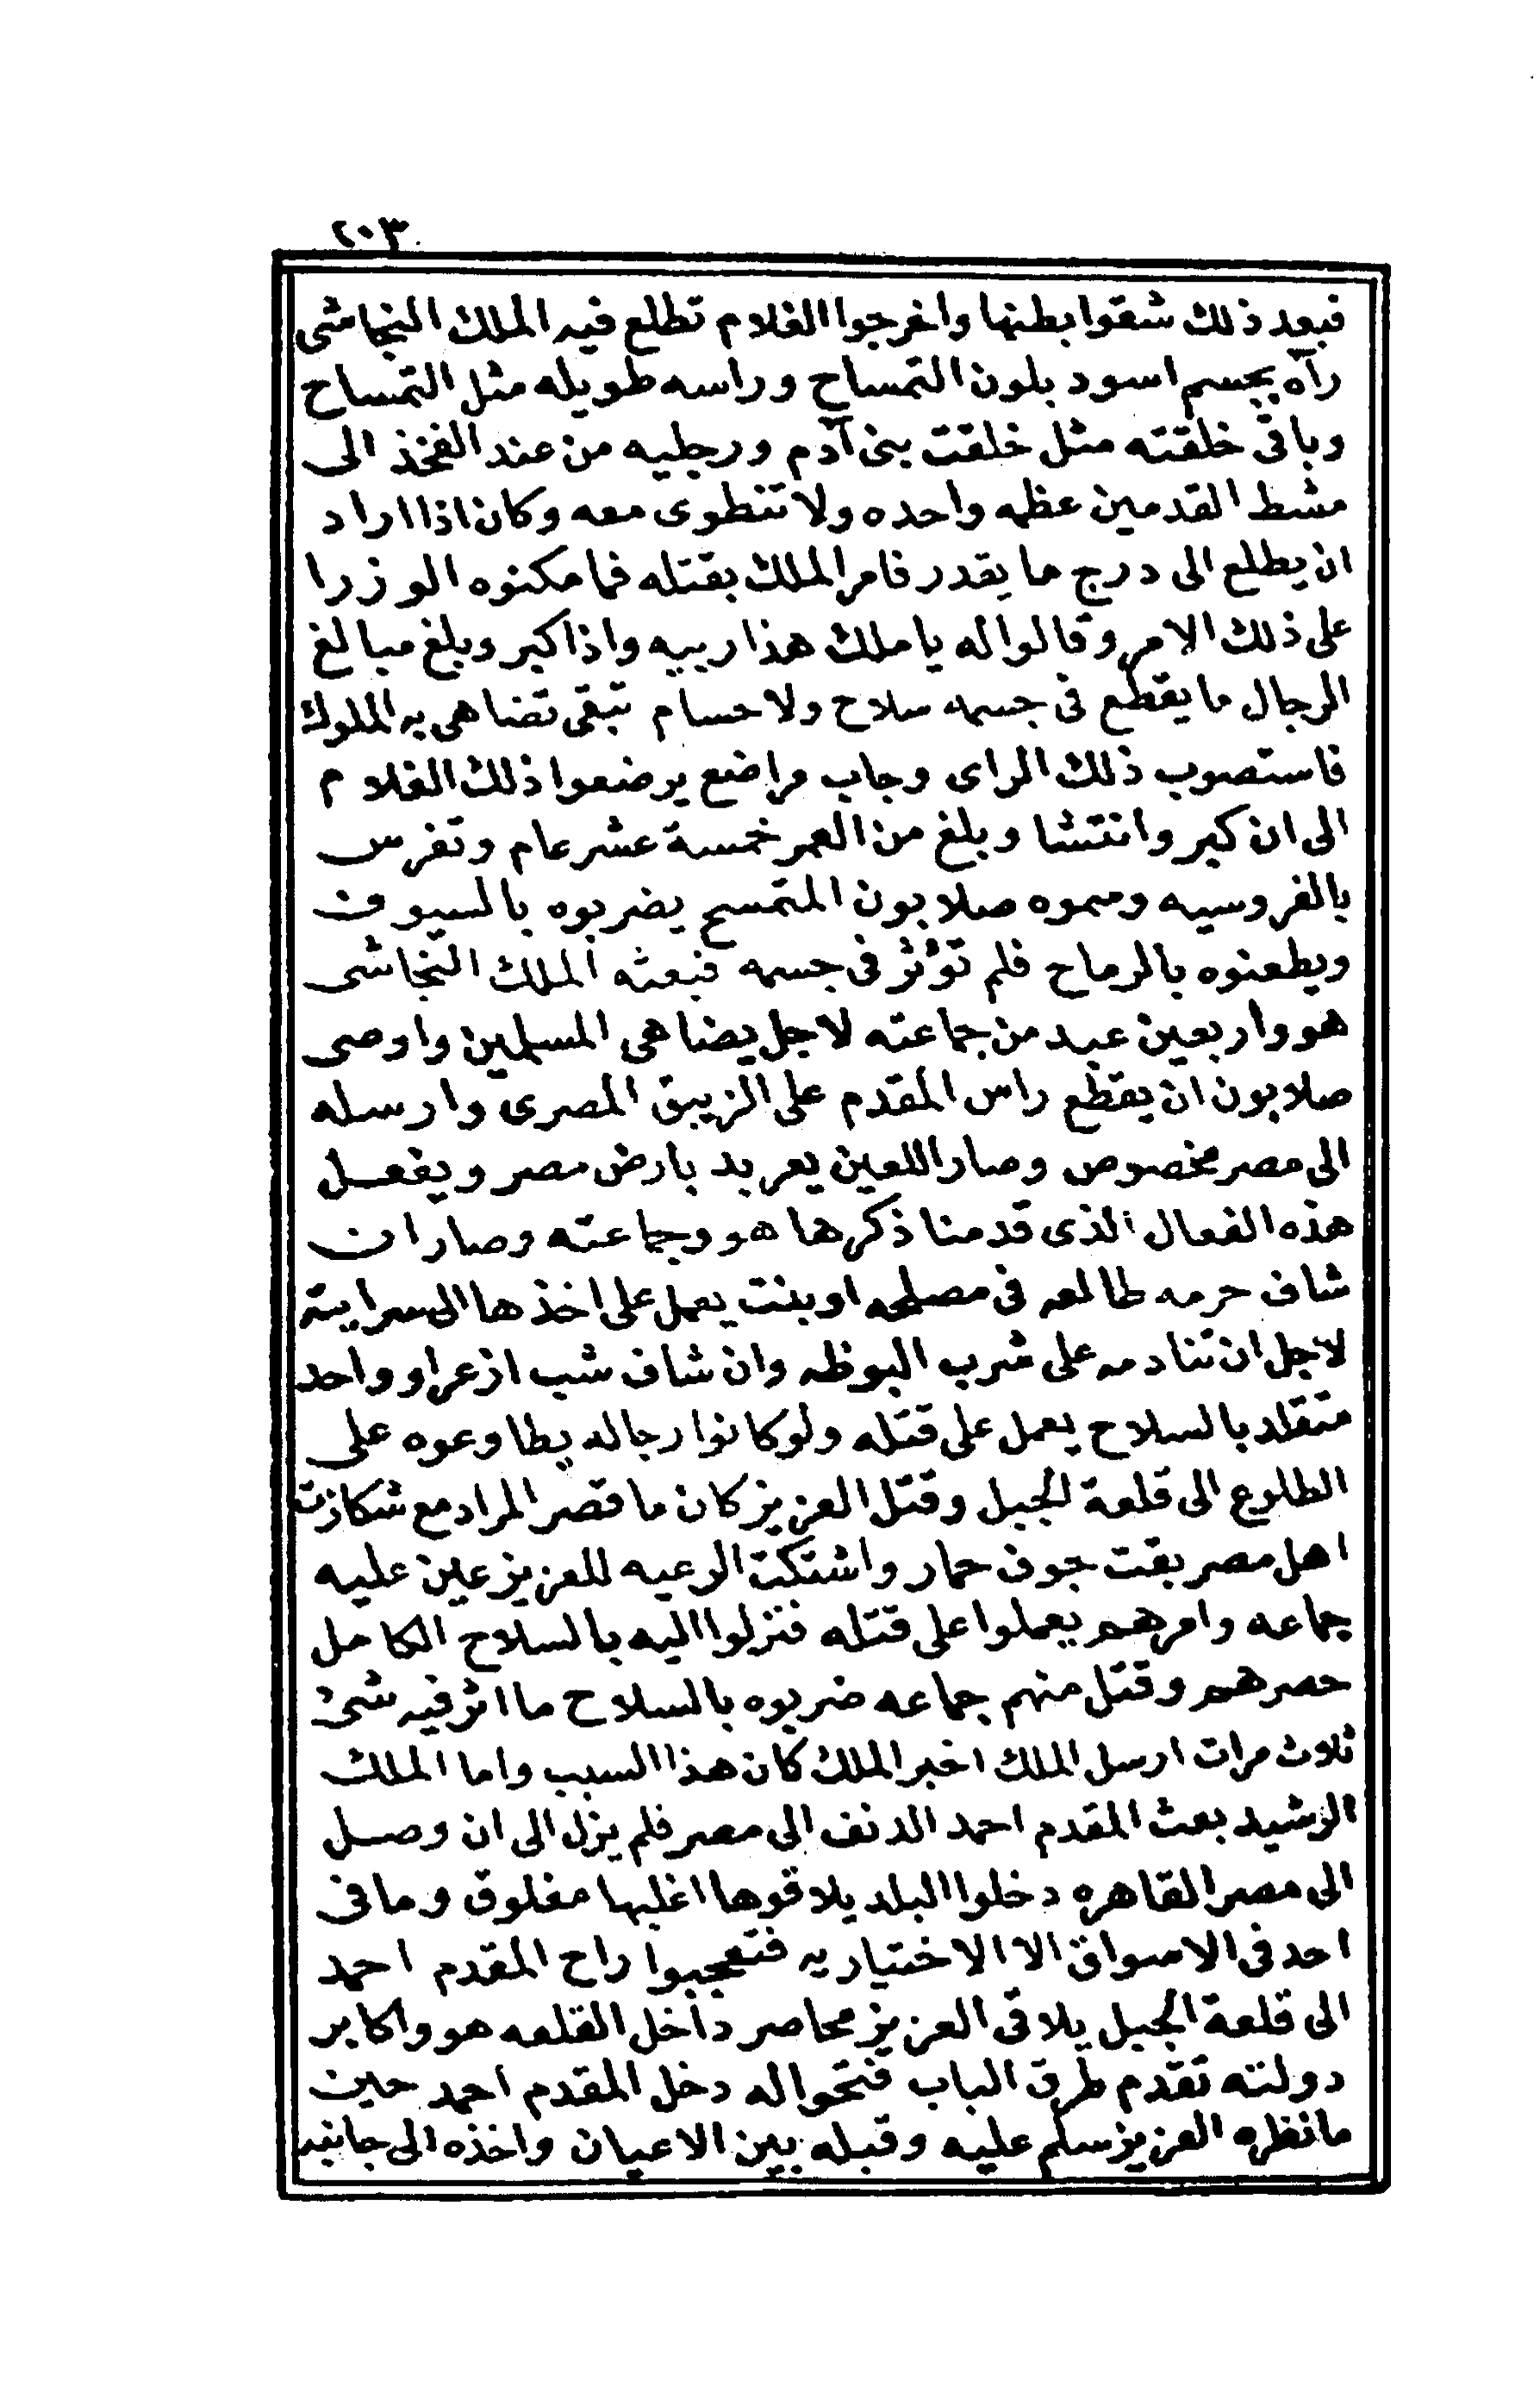 ٢٠٣
فبعد ذلك شقوا بطنها واخرجوا الغلام تطلع فيه الملك النجاشى
رآه بجسم اسود بلون التمساح وراسه طويله مثل التمساح
وباقى خلقته مثل خلقت بنى آدم ورجليه من عند الفخذ الى
مشط القدمين عظمه واحده ولا تنطوى معه وكان اذا اراد
ان يطلع الى درج ما يقدر فامر الملك بقتله فما مكنوه الوزرا
على ذلك الامر وقالوا له يا ملك هذا ربيه واذا كبر وبلغ مبالغ
الرجال ما يقطع فى جسمه سلاح ولا حسام تبقى تضاهى به الملوك
فاستصوب ذلك الراى وجاب مراضع يرضعوا ذلك الغلام
الى ان كبر وانتشا وبلغ من العمر خمسة عشر عام وتفرس
بالفروسيه وسموه صلابون المتمسح يضربوه بالسيوف
ويطعنوه بالرماح فلم تؤثر فى جسمه فبعثه الملك النجاشى
هو واربعين عبد من جماعته لاجل يضاهى المسلمين واوصى
صلابون ان يقطع راس المقدم على الزيبق المصرى وارسله
الى مصر مخصوص وصار اللعين يعربد بارض مصر ويفعل
هذه الفعال الذى قدمنا ذكرها هو وجماعته وصار ان
شاف حرمه طالعه فى مصلحه او بنت يعمل على اخذها الى سرايته
لاجل ان تنادمه على شرب البوظه وان شاف شب ازعر او واحد
متقلد بالسلاح يعمل على قتله ولو كانوا رجاله يطاوعوه على
الطلوع الى قلعة الجبل وقتل العزيز كان ما قصر المراد مع شكازت
اهل مصر بقت جوف حمار واشتكت الرعيه للعزيز عين عليه
جماعه وامرهم يعملوا على قتله فنزلوا اليه بالسلاح الكامل
حصرهم وقتل منهم جماعه ضربوه بالسلاح ما اثر فيه شئ
ثلاث مرات ارسل الملك اخبر الملك كان هذا السبب واما الملك
الرشيد بعث المقدم احمد الدنف الى مصر فلم يزل الى ان وصل
الى مصر القاهره دخلوا البلد يلاقوها اغلبها مغلوق وما فى
احد فى الاسواق الا الاختياريه فتعجبوا راح المقدم احمد
الى قلعة الجبل يلاقى العزيز محاصر داخل القلعه هو واكابر
دولته تقدم طرق الباب فتحوا له دخل المقدم احمد حين
ما نظره العزيز سلم عليه وقبله بين الاعيان واخذه الى جانبه